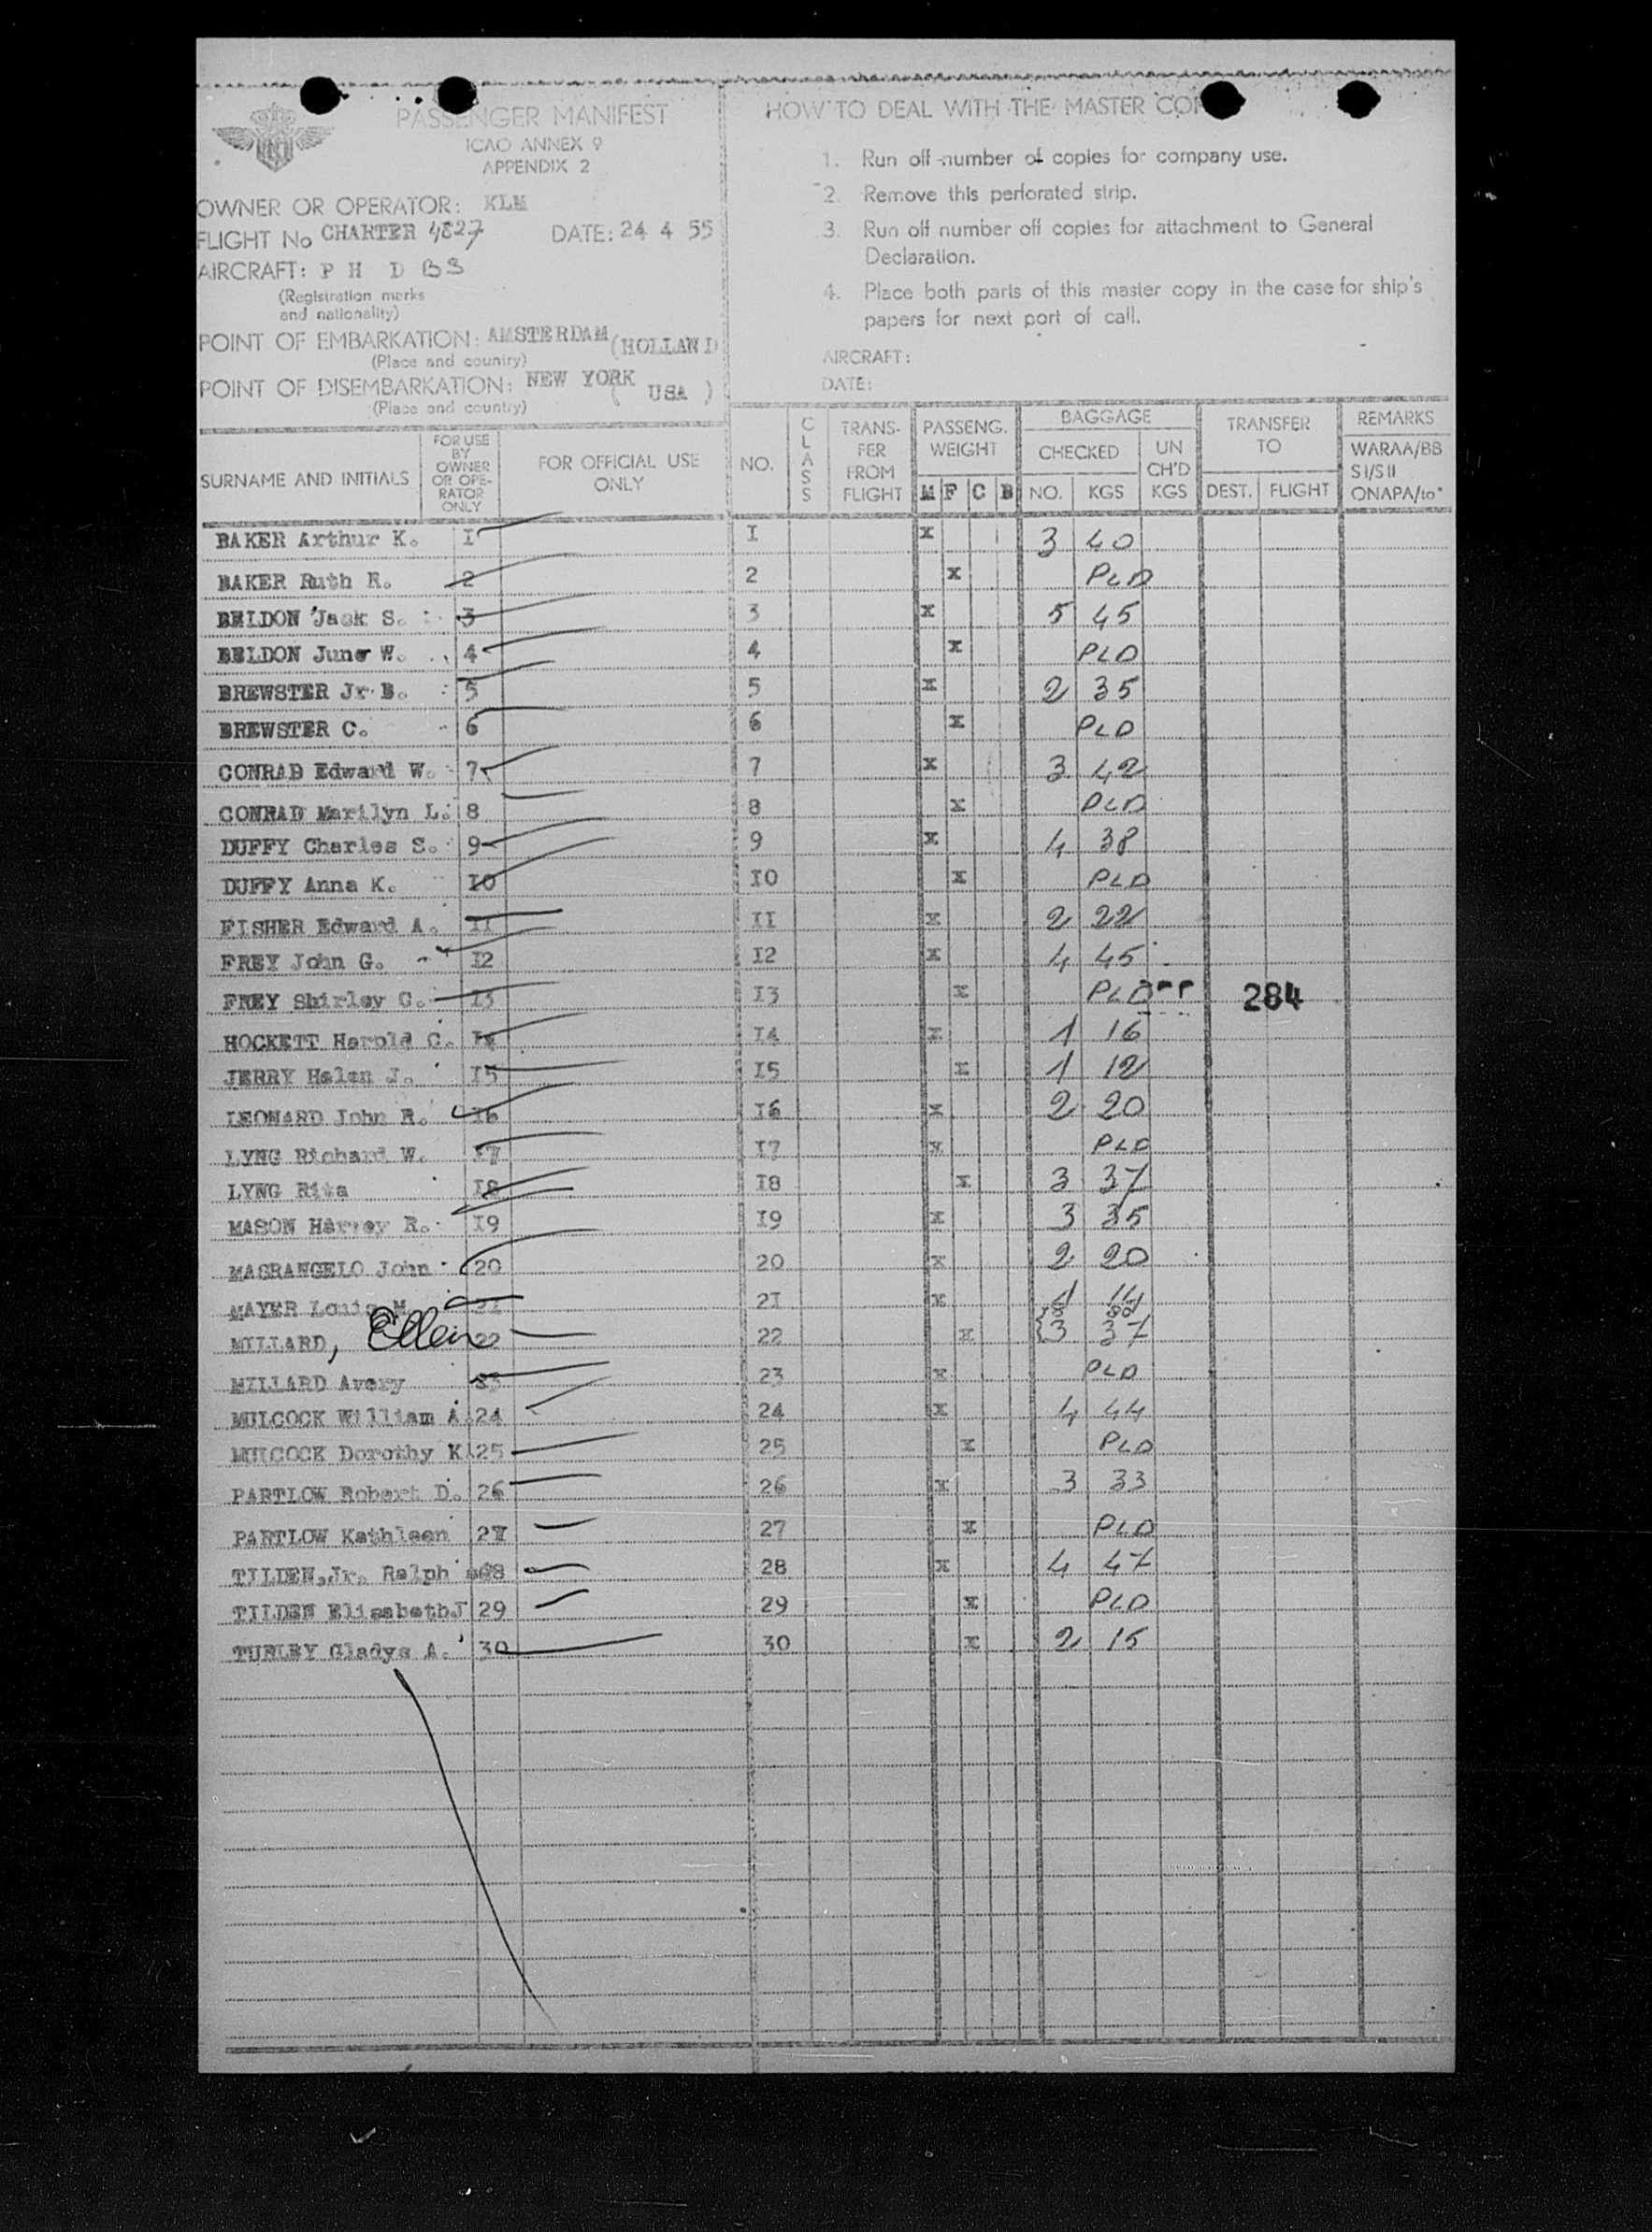 PASSENGER MANIFEST
ICAO ANNEX 9
APPENDIX 2
OWNER OR OPERATOR: KLM
FLIGHT No CHARTER 4827 DATE: 24 4 55
AIRCRAFT: P H D BS
(Registration marks
and nationality)
POINT OF EMBARKATION: AMSTERDAM (HOLLAND
(Place and country)
POINT OF DISEMBARKATION: NEW YORK ( USA )
(Place and country)
HOW TO DEAL WITH THE MASTER
1. Run off number of copies for company use.
2. Remove this perforated strip.
3. Run off number off copies for attachment to General
Declaration.
4. Place both parts of this master copy in the case for ship's
papers for next port of call.
AIRCRAFT:
DATE:
SURNAME AND INITIALS
FOR USE
BY
OWNER
OR OPE-
RATOR
ONLY
FOR OFFICIAL USE
ONLY
NO.
CLASS
TRANS-
FER
FROM
FLIGHT
PASSENG.
WEIGHT
M F C B
BAGGAGE
CHECKED
NO. KGS
UN
CH'D
KGS
TRANSFER
TO
DEST. FLIGHT
REMARKS
WARAA/BB
SI/SII
ONAPA/to"
BAKER Arthur K. I I X 3 40
BAKER Ruth R. 2 2 X PLD
BELDON Jack S. 3 3 X 5 45
BELDON June W. 4 4 X PLD
BREWSTER Jr B. 5 5 X 2 35
BREWSTER C. 6 6 X PLD
CONRAD Edward W. 7 7 X 3 42
CONRAD Marilyn L. 8 8 X PLD
DUFFY Charles S. 9 9 X 4 38
DUFFY Anna K. I0 I0 X PLD
FISHER Edward A. II II X 2 22
FREY John G. I2 I2 X 4 45
FREY Shirley C. I3 I3 X PLD 284
HOCKETT Harold C. I4 I4 X 1 16
JERRY Helen J. I5 I5 X 1 12
LEONARD John R. I6 I6 X 2 20
LYNG Richard W. I7 I7 X PLD
LYNG Rita I8 I8 X 3 37
MASON Harvey R. I9 I9 X 3 35
MASRANGELO John 20 20 X 2 20
MAYER Louis M. 2I 2I X 1 14
MILLARD, Ellen 22 22 X 3 37
MILLARD Avery 23 23 X PLD
MULCOCK William A 24 24 X 4 44
MULCOCK Dorothy K 25 25 X PLD
PARTLOW Robert D. 26 26 X 3 33
PARTLOW Kathleen 27 27 X PLD
TILDEN,Jr. Ralph 28 28 X 4 47
TILDEN ElisabethJ 29 29 X PLD
TURLEY Gladys A. 30 30 X 2 15